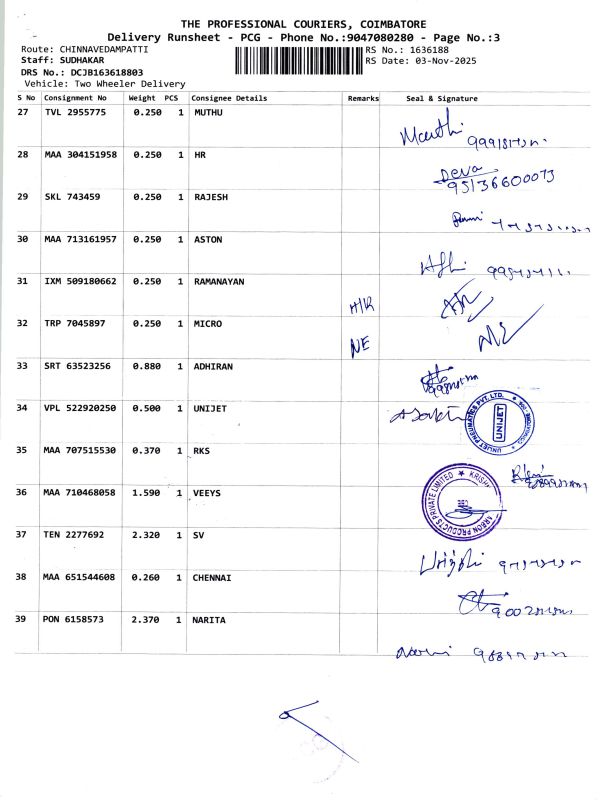 THE PROFESSIONAL COURIERS, COIMBATORE
Delivery Runsheet - PCG - Phone No.:9047080280 - Page No.:3
Route: CHINNAVEDAMPATTI RS No.: 1636188
Staff: SUDHAKAR RS Date: 03-Nov-2025
DRS No.: DCJB163618803
Vehicle: Two Wheeler Delivery
S No Consignment No Weight PCS Consignee Details Remarks Seal & Signature
27 TVL 2955775 0.250 1 MUTHU
28 MAA 304151958 0.250 1 HR
Deva
95136600073
29 SKL 743459 0.250 1 RAJESH
30 MAA 713161957 0.250 1 ASTON
31 IXM 509180662 0.250 1 RAMANAYAN
H/R
32 TRP 7045897 0.250 1 MICRO
NE
33 SRT 63523256 0.880 1 ADHIRAN
34 VPL 522920250 0.500 1 UNIJET
UNIJET PNEUMATICS PVT. LTD.
UNIJET
35 MAA 707515530 0.370 1 RKS
36 MAA 710468058 1.590 1 VEEYS
PRODUCTS PRIVATE LIMITED ★
37 TEN 2277692 2.320 1 SV
38 MAA 651544608 0.260 1 CHENNAI
39 PON 6158573 2.370 1 NARITA